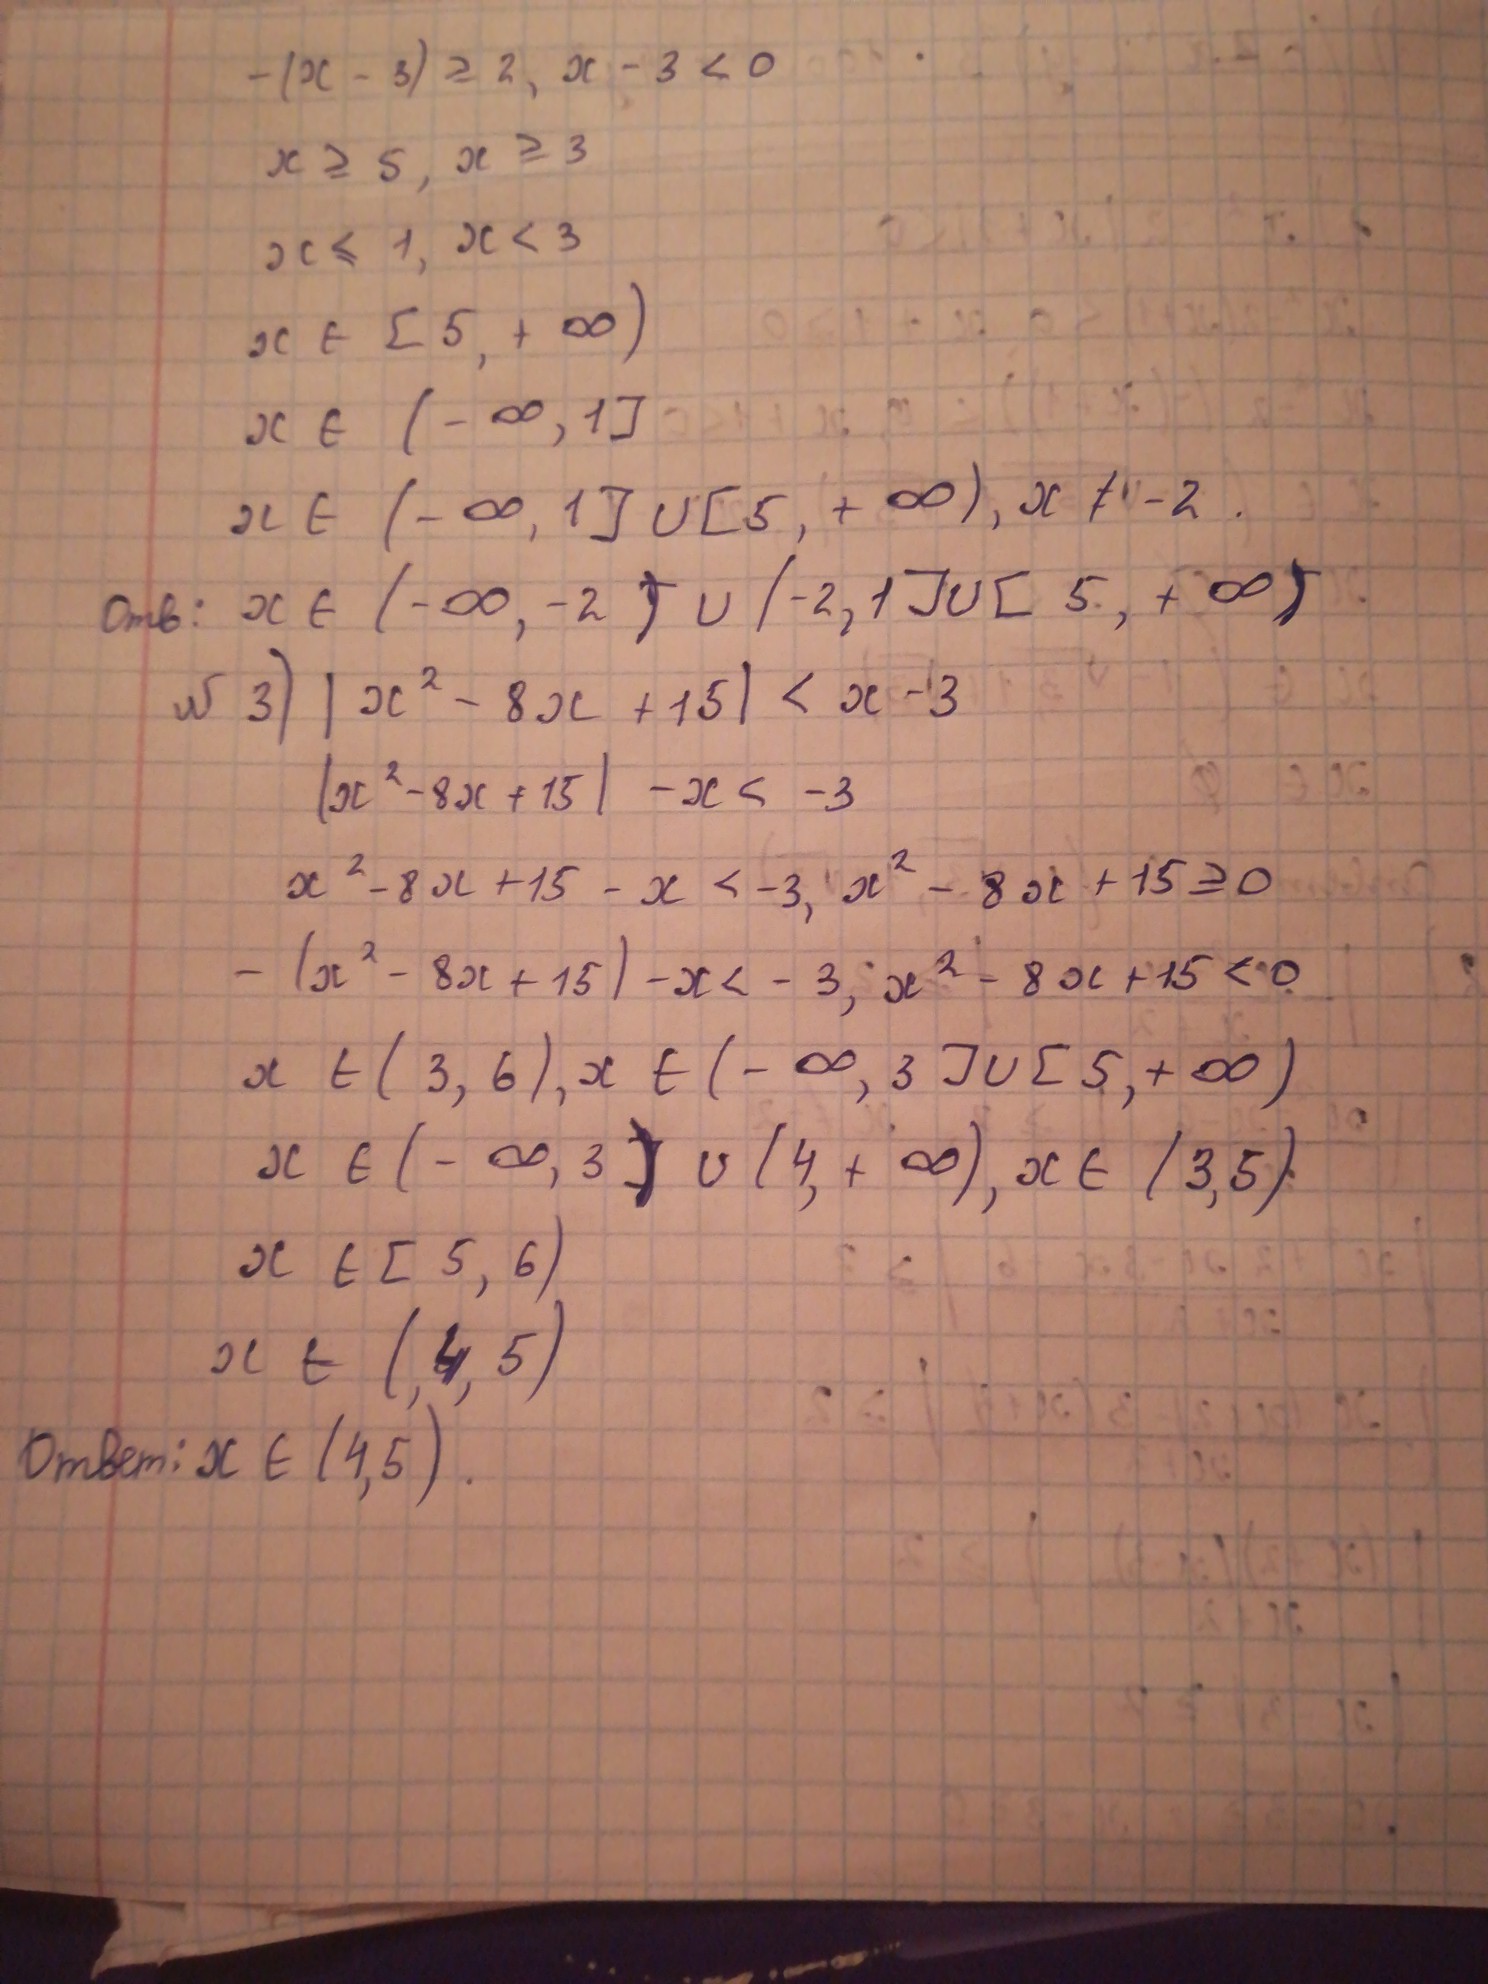 -(x - 3) ≥ 2, x - 3 < 0
x ≥ 5, x ≥ 3
x ≤ 1, x < 3
x ∈ [5, + ∞)
x ∈ (- ∞, 1]
x ∈ (- ∞, 1] ∪ [5, + ∞), x ≠ -2.
Отв: x ∈ (-∞, -2) ∪ (-2, 1] ∪ [5, + ∞)
№ 3) |x² - 8x + 15| < x - 3
|x² - 8x + 15| - x < -3
x² - 8x + 15 - x < -3, x² - 8x + 15 ≥ 0
- (x² - 8x + 15) - x < - 3, x² - 8x + 15 < 0
x ∈ (3, 6), x ∈ (- ∞, 3] ∪ [5, + ∞)
x ∈ (- ∞, 3) ∪ (4, + ∞), x ∈ (3, 5)
x ∈ [5, 6)
x ∈ (4, 5)
Ответ: x ∈ (4, 5).